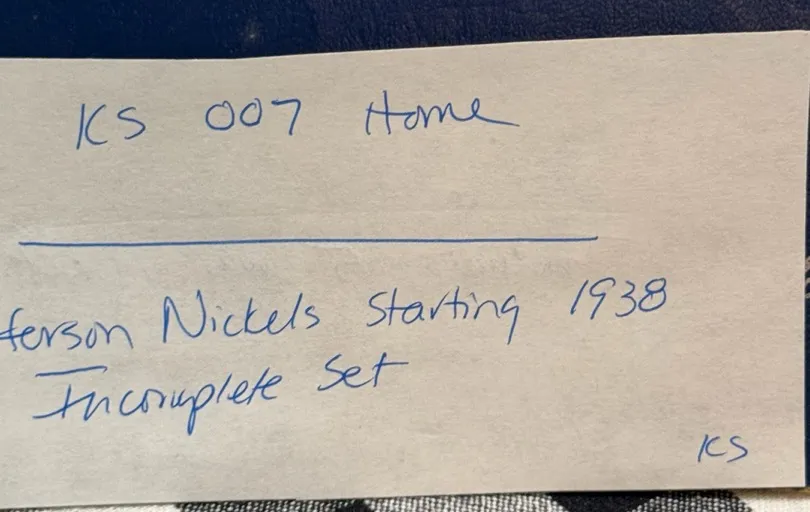 KS 007 Home
ferson Nickels Starting 1938
Incomplete Set
KS